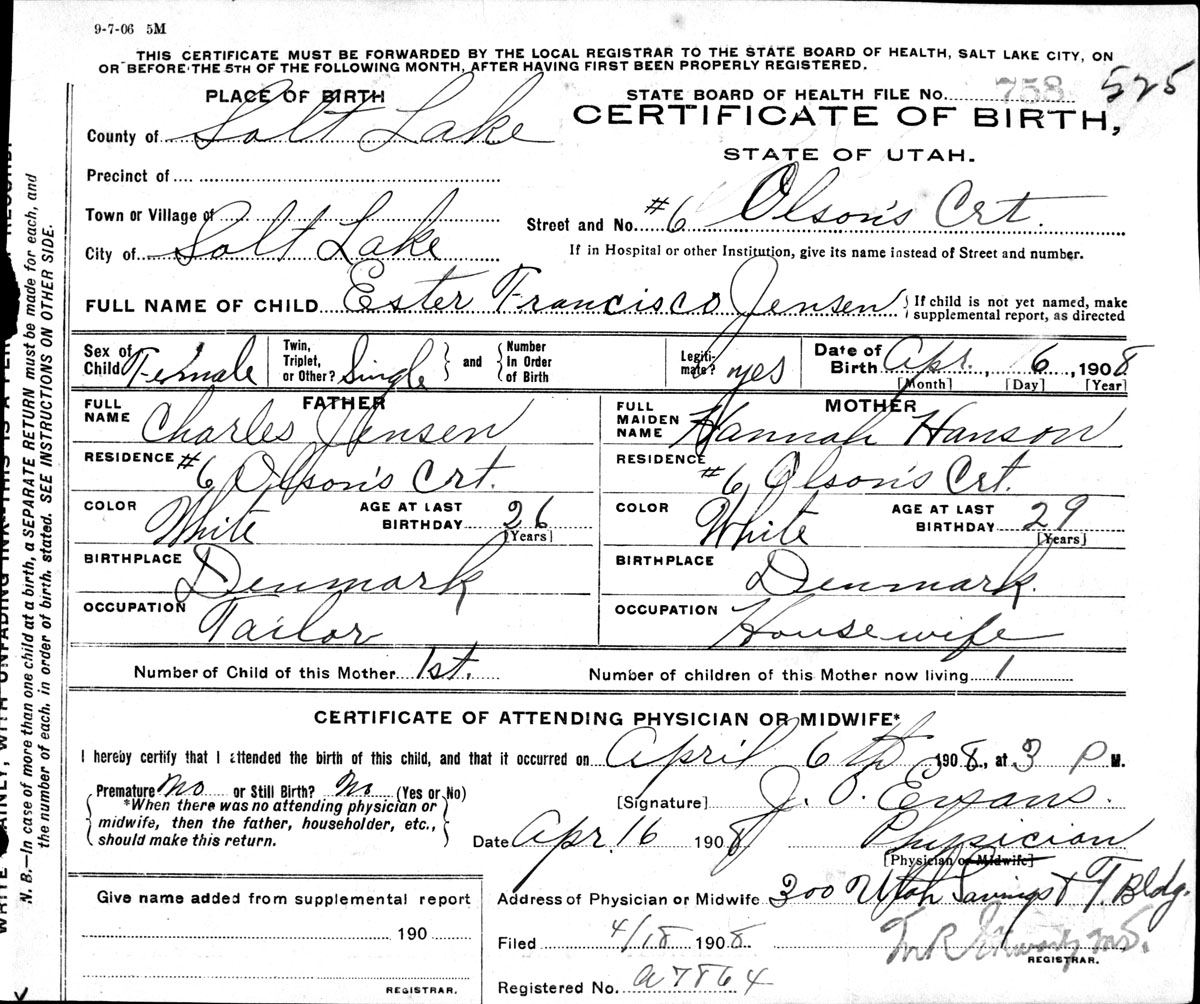 9-7-06 5M
THIS CERTIFICATE MUST BE FORWARDED BY THE LOCAL REGISTRAR TO THE STATE BOARD OF HEALTH, SALT LAKE CITY, ON
OR BEFORE THE 5TH OF THE FOLLOWING MONTH, AFTER HAVING FIRST BEEN PROPERLY REGISTERED.
PLACE OF BIRTH
STATE BOARD OF HEALTH FILE NO. 758 525
County of Salt Lake
CERTIFICATE OF BIRTH,
STATE OF UTAH.
Precinct of
Town or Village of
Street and No. #6 Olson's Crt.
City of Salt Lake
If in Hospital or other Institution, give its name instead of Street and number.
FULL NAME OF CHILD Ester Francisco Jensen { If child is not yet named, make
supplemental report, as directed
Sex of Child Female
Twin, Triplet, or Other? Single } and { Number In Order of Birth
Legiti-mate? yes
Date of Birth Apr. 6, 1908
[Month] [Day] [Year]
FATHER
FULL NAME Charles Jensen
RESIDENCE #6 Olson's Crt.
COLOR White AGE AT LAST BIRTHDAY 26
[Years]
BIRTHPLACE Denmark
OCCUPATION Tailor
MOTHER
FULL MAIDEN NAME Hannah Hanson
RESIDENCE #6 Olson's Crt.
COLOR White AGE AT LAST BIRTHDAY 29
[Years]
BIRTHPLACE Denmark.
OCCUPATION Housewife
Number of Child of this Mother 1st. Number of children of this Mother now living 1
CERTIFICATE OF ATTENDING PHYSICIAN OR MIDWIFE*
I hereby certify that I attended the birth of this child, and that it occurred on April 6th 1908., at 3 P M.
Premature No or Still Birth? No (Yes or No)
*When there was no attending physician or
midwife, then the father, householder, etc.,
should make this return.
[Signature] J. O. Ewans.
Date Apr. 16 1908 Physician
[Physician or Midwife]
Give name added from supplemental report
190
REGISTRAR.
Address of Physician or Midwife 300 Utah Savings & T. Bldg.
Filed 4/18 1908
REGISTRAR.
Registered No. a7864
N. B.—In case of more than one child at a birth, a SEPARATE RETURN must be made for each, and
the number of each, in order of birth, stated. SEE INSTRUCTIONS ON OTHER SIDE.